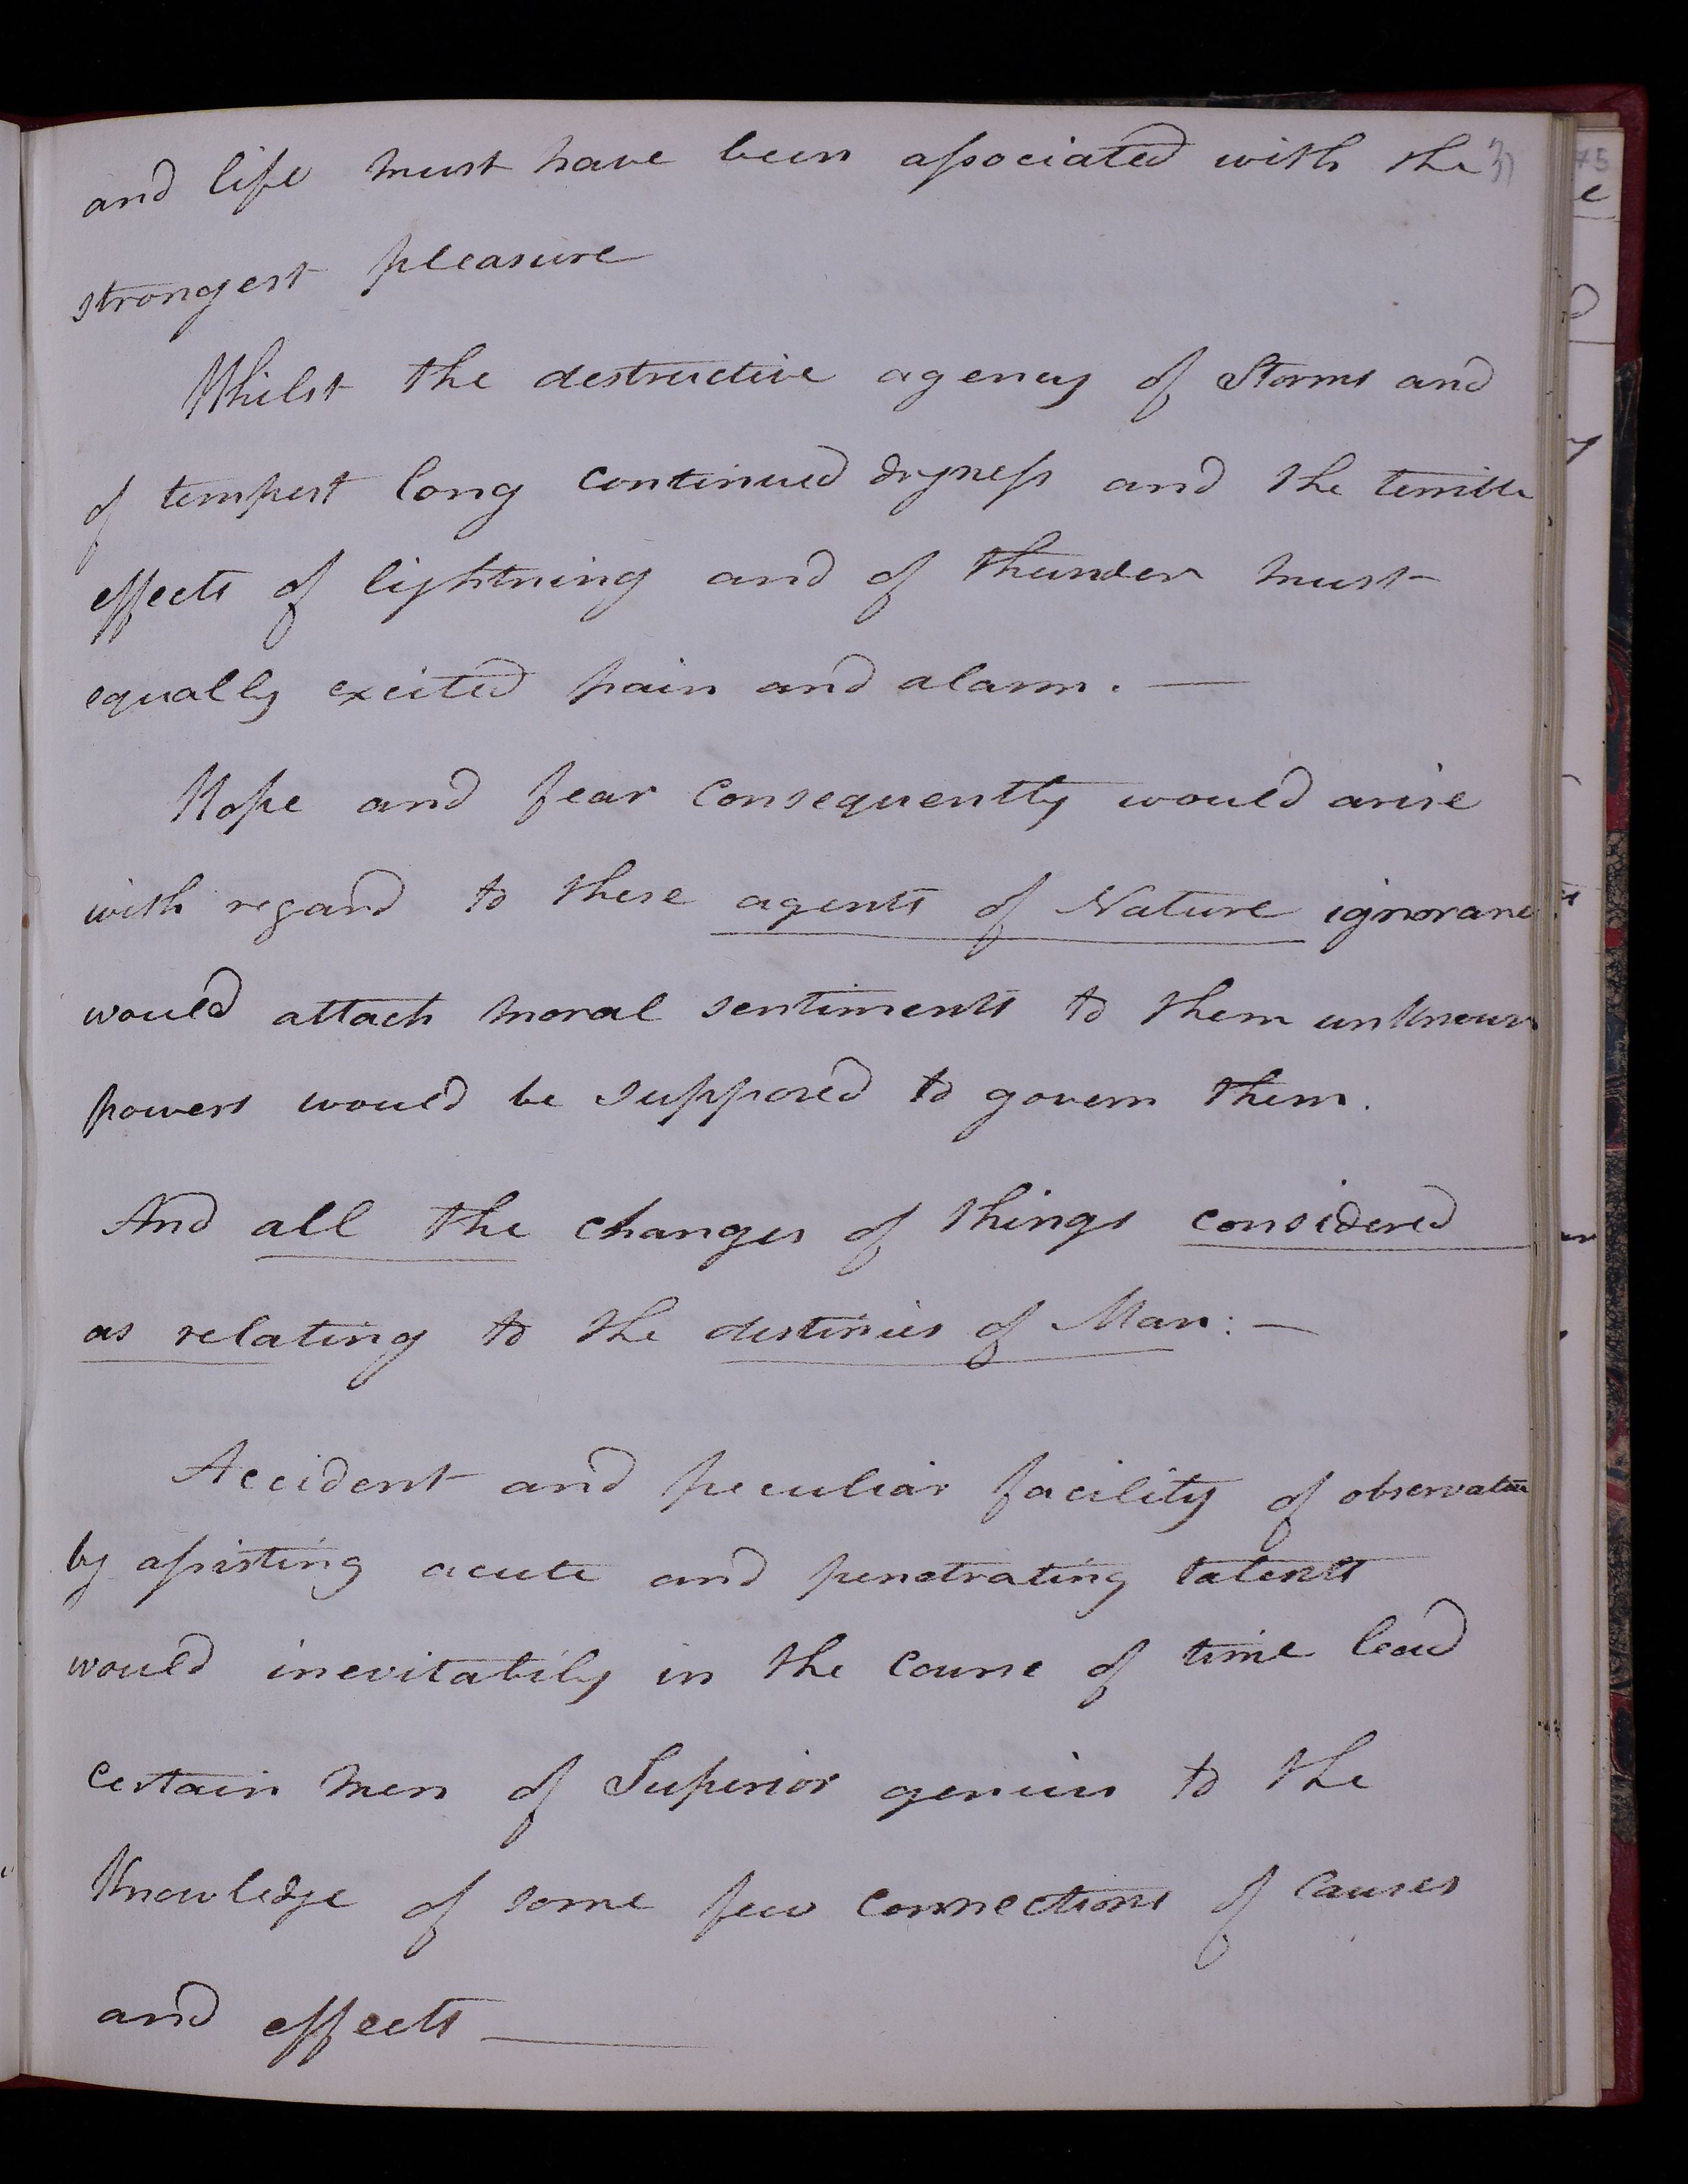 and life must have been associated with the 31
strongest pleasure
Whilst the destructive agency of Storms and
of tempest long continued dryness and the terrible
effects of lightning and of thunder must
equally excited pain and alarm. —
Hope and fear consequently would arise
with regard to these agents of Nature ignorance
would attach moral sentiments to them unknown
powers would be supposed to govern them.
And all the changes of things considered
as relating to the destinies of Man: —
Accident and peculiar facility of observation
by assisting acute and penetrating talents
would inevitabily in the course of time lead
certain men of Superior genius to the
Knowledge of some few connections of causes
and effects —